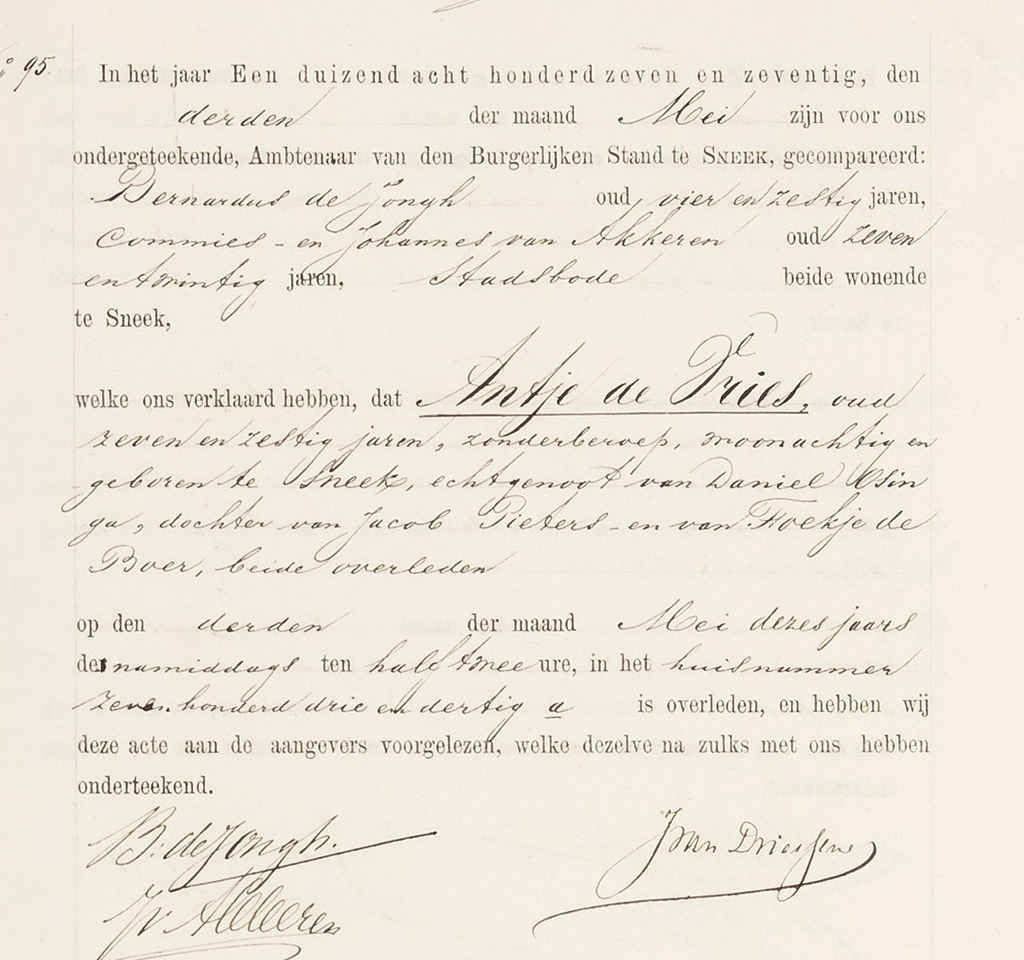 No 95.
In het jaar Een duizend acht honderd zeven en zeventig, den
derden der maand Mei zijn voor ons
ondergeteekende, Ambtenaar van den Burgerlijken Stand te SNEEK, gecompareerd:
Bernardus de Jongh oud vier en zestig jaren,
Commies - en Johannes van Akkeren oud zeven
en twintig jaren, Stadsbode beide wonende
te Sneek,
welke ons verklaard hebben, dat Antje de Vries, oud
zeven en zestig jaren, zonder beroep, woonachtig en
geboren te Sneek, echtgenoot van Daniel Osin
ga, dochter van Jacob Pieters - en van Foekje de
Boer, beide overleden
op den derden der maand Mei dezes jaars
des namiddags ten half twee ure, in het huisnummer
zeven honderd drie en dertig a is overleden, en hebben wij
deze acte aan de aangevers voorgelezen, welke dezelve na zulks met ons hebben
onderteekend.
B. de Jongh. J van Driessen
J v Akkeren